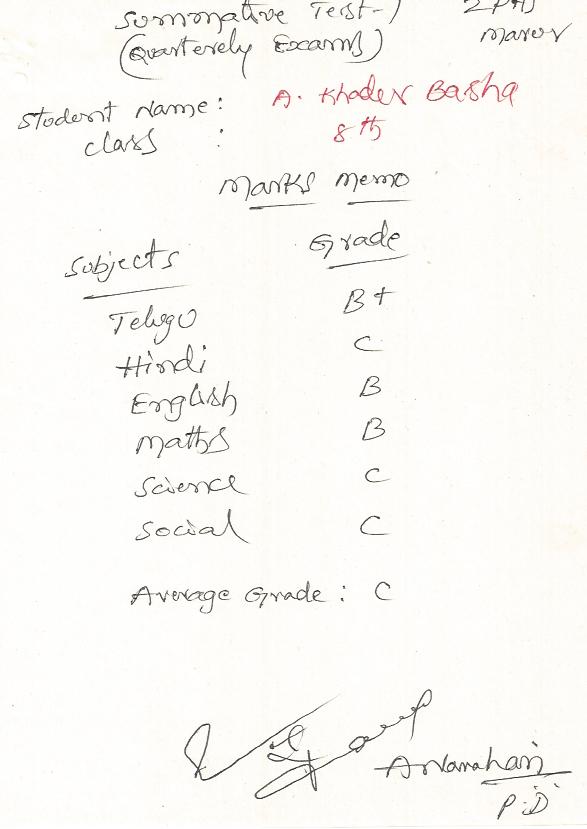 Summative Test-1
(Quarterely Exams)
Student Name : A. Khader Basha
class : 8th
Marks Memo
Subjects Grade
Telugo B+
Hindi C
English B
Maths B
Science C
Social C
Average Grade : C
P.D